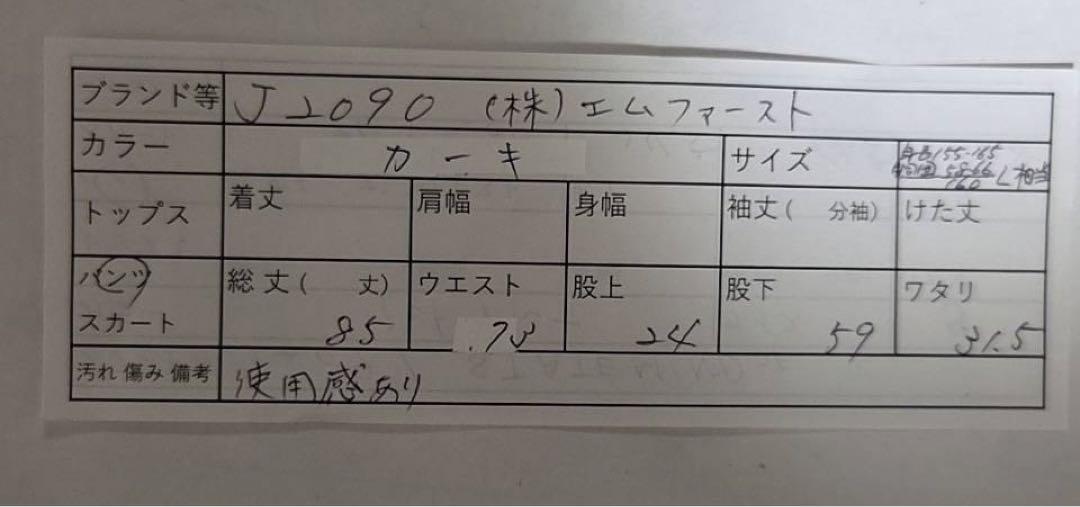 ブランド等 J2090 (株)エムファースト
カラー カーキ サイズ 身長155-165
胴囲 58-66 L相当
160
トップス 着丈 肩幅 身幅 袖丈( 分袖) けた丈
パンツ 総丈( 丈) ウエスト 股上 股下 ワタリ
スカート 85 24 59 31.5
汚れ 傷み 備考 使用感あり